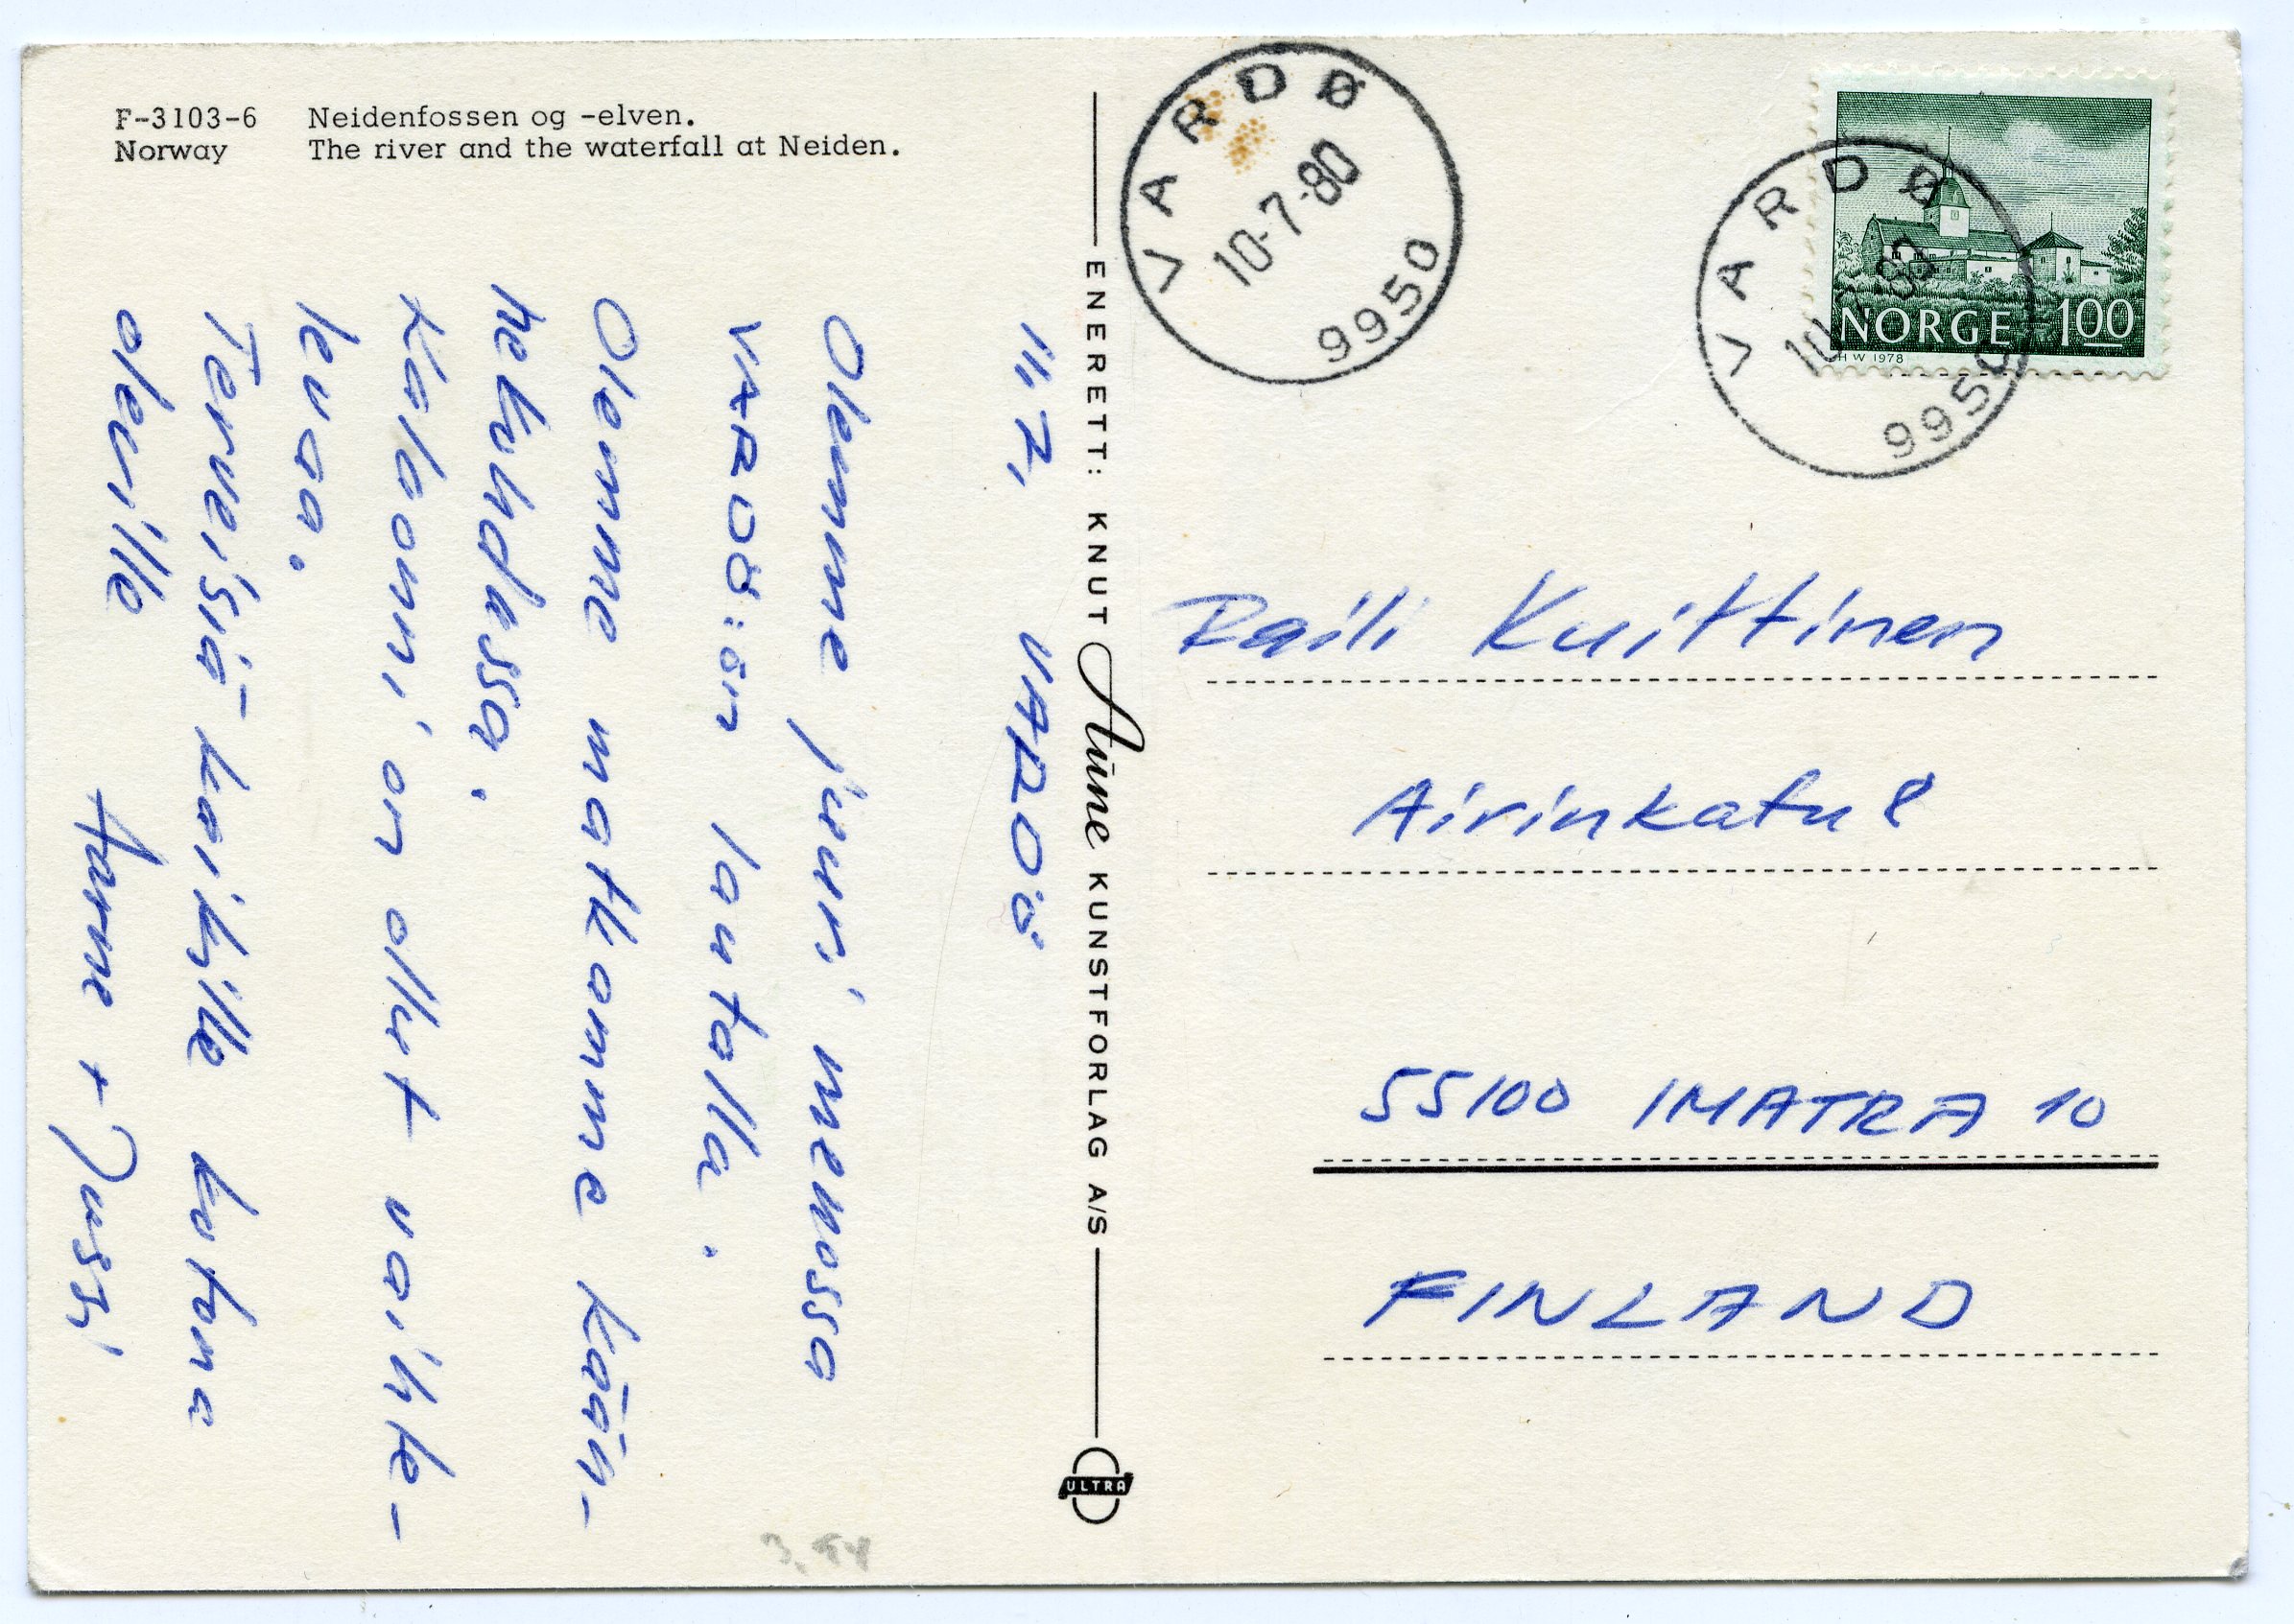 F-3103-6 Neidenfossen og -elven.
Norway The river and the waterfall at Neiden.
11.7. VARDÖ
Olemme juuri menossa
VARDÖ:ön lautalla.
Olemme matkamme kään-
nekohdassa.
Kalaonni on ollut vaihte-
levaa.
Terveisiä kaikille kotona
oleville
Aarne + Jussi
ENERETT: KNUT Aune KUNSTFORLAG A/S
ULTRA
VARDØ
10-7-80
9950
VARDØ
10-7-80
9950
NORGE 100
HW 1978
Raili Kuittinen
Airinkatu 8
55100 IMATRA 10
FINLAND